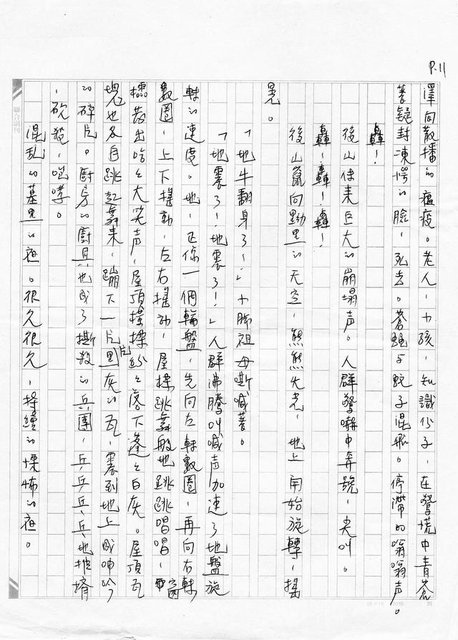 P.11
澤向散播的瘟疫。老人，小孩，知識份子，在驚慌中青蒼
著錯封凍愕的臉，死去。蒼蠅子蚊子混飛。停滯的嗡嗡聲。
轟！
後山傳來巨大的崩塌聲。人群驚嚇中奔跑，尖叫。
轟！轟！轟！
後山竄向黝黑的天空，熊熊火光，地上開始旋轉，搖
晃。
「地牛翻身了！」小腳祖母嘶喊著。
「地震了！地震了！」人群沸騰叫喊声加速了地盤旋
轉的速度。地，正像一個輪盤，先向左轉數圈，再向右轉
數圈，上下搖動，左右擺動，屋樑跳舞般地跳跳唱唱，窗
櫺發出哈哈大笑声，屋頂樑紛紛落下蓬蓬白灰。屋頂瓦
塊也各自跳起舞來，蹦下一片片黑灰的瓦，震到地上成呻吟
的碎片。廚房的廚具也成了撕殺的兵團，乒乒乓乓地推擠
，砍殺，咆哮。
混乱的墓黑的夜。很久很久，持續的悚怖的夜。